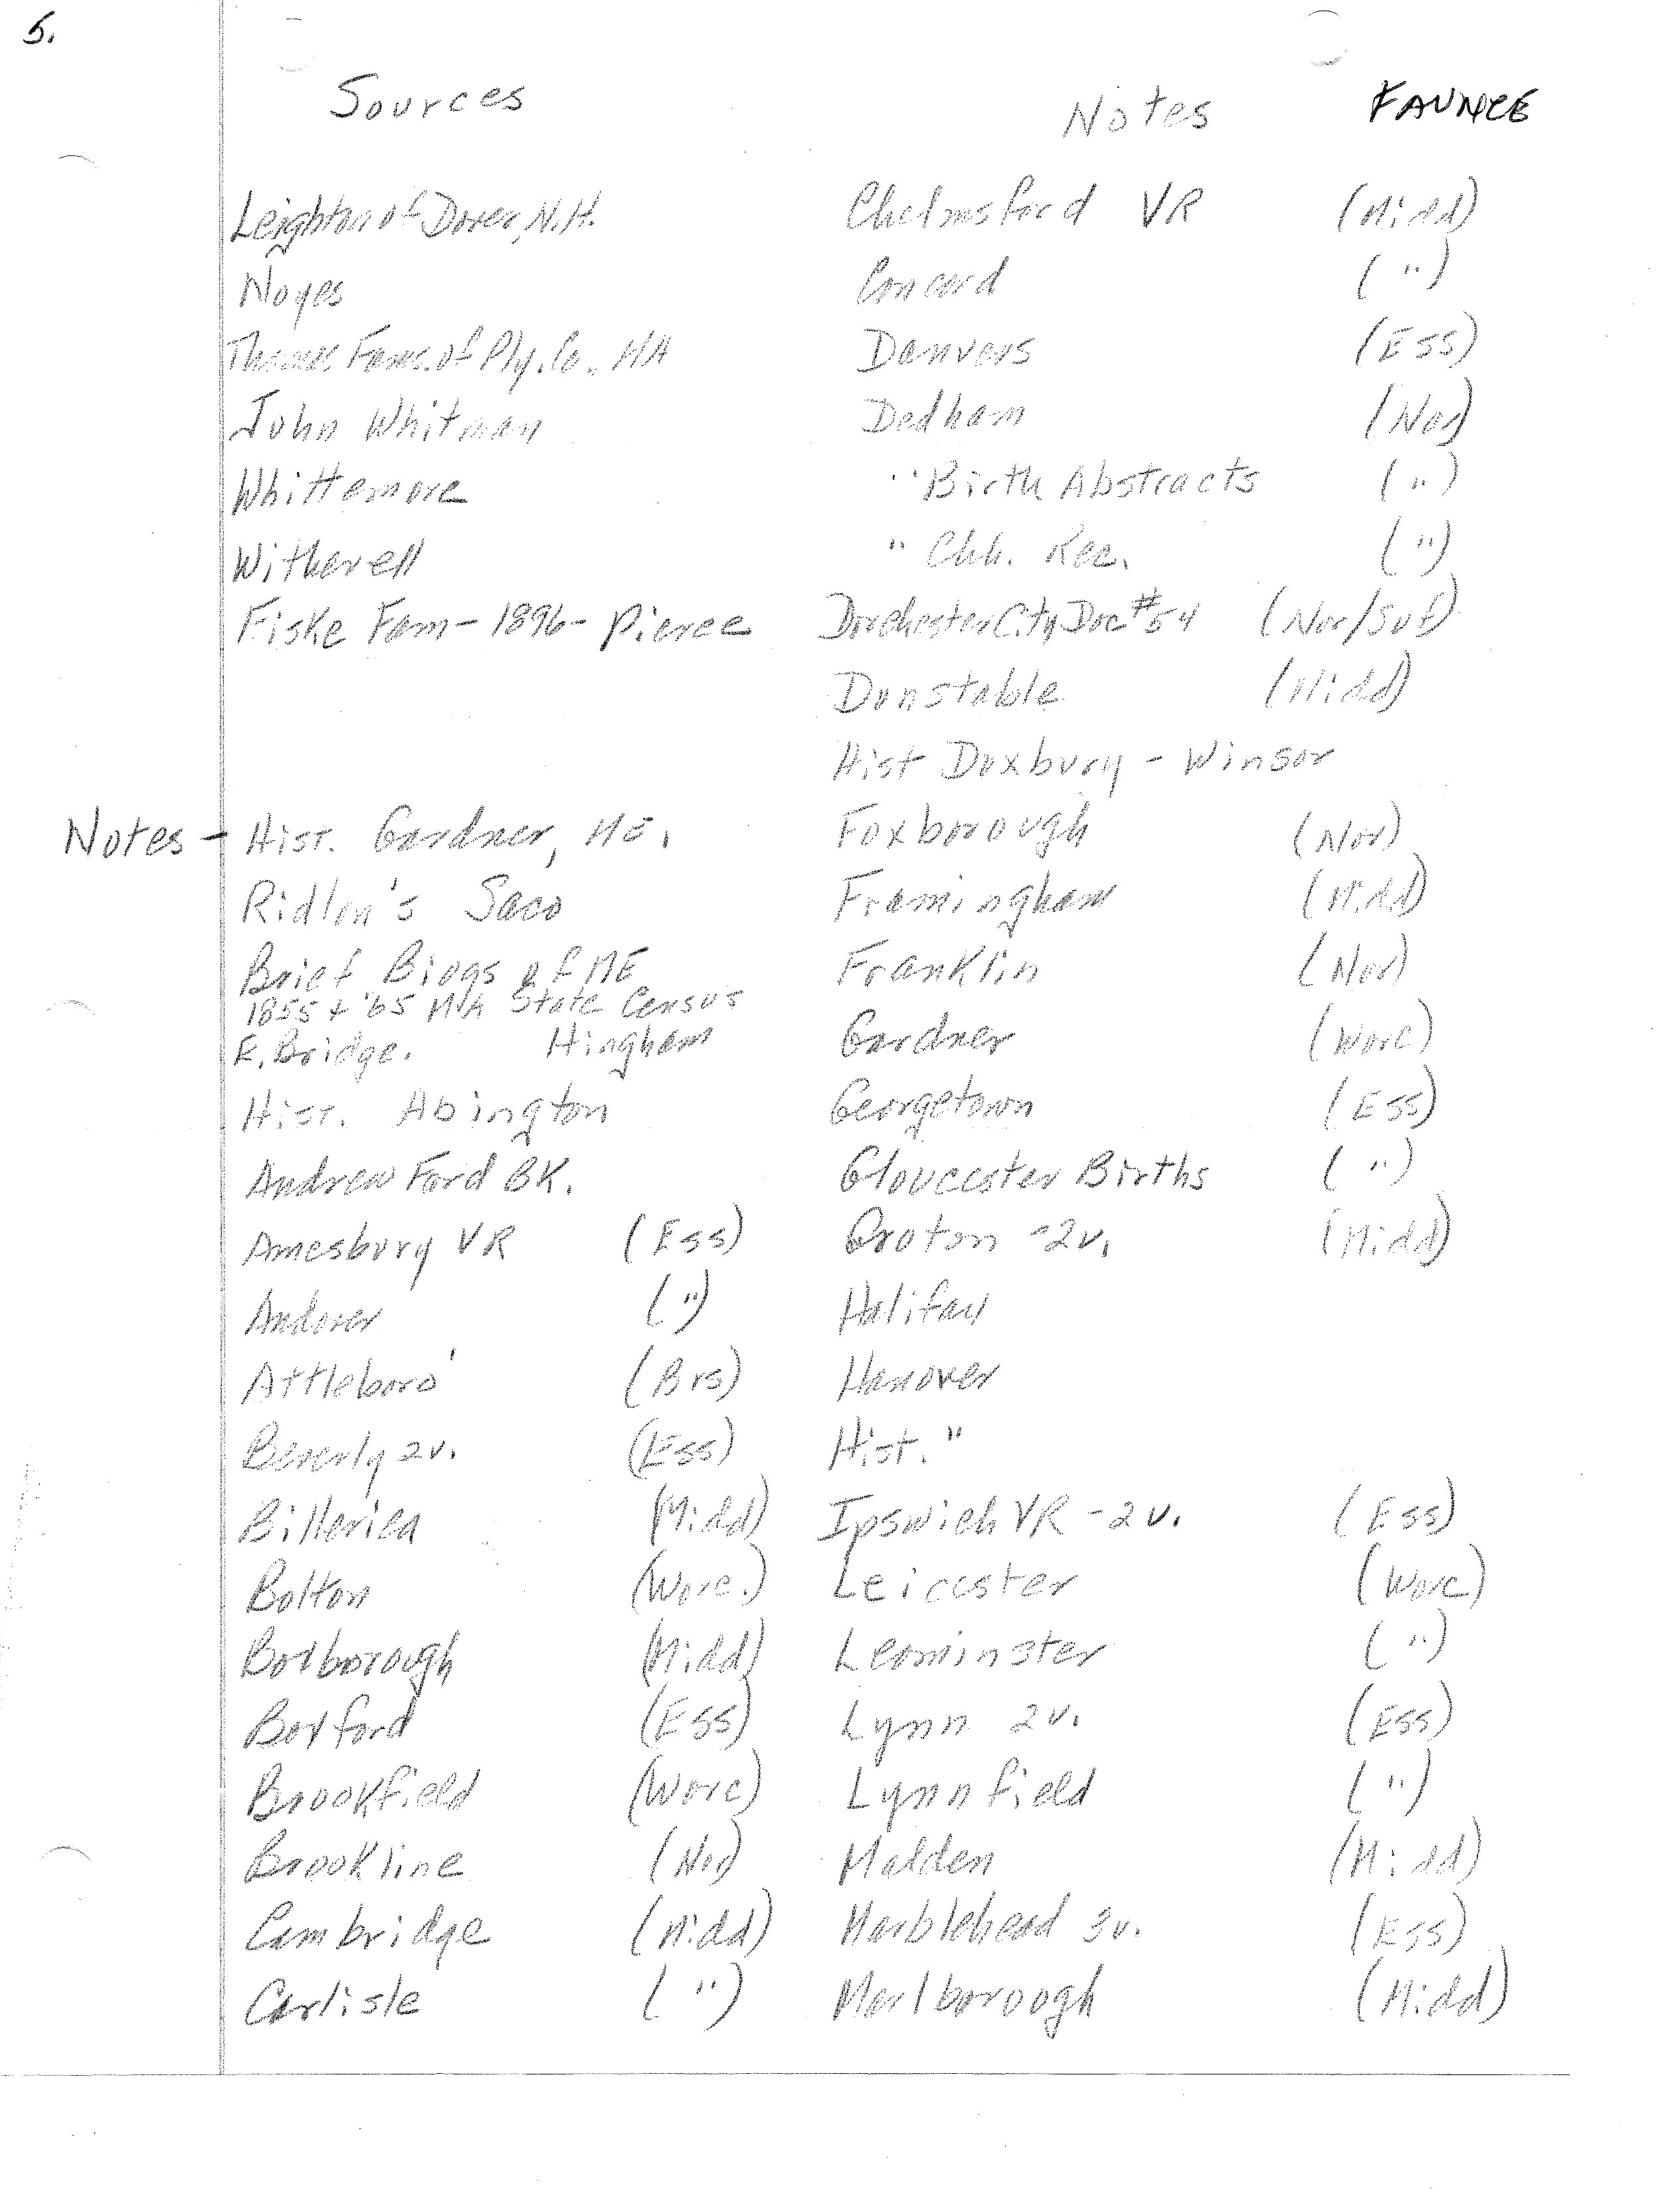 5.
Sources
Leighton of Dover, N.H.
Noyes
Fams. of Ply. Co. MA
John Whitman
Whittemore
Witherell
Fiske Fam - 1896 - Pierce
Notes - Hist. Gardner, ME.
Ridlon's Saco
Brief Biogs of ME
1855 + '65 MA State Census
E. Bridge. Hingham
Hist. Abington
Andrew Ford BK.
Amesbury VR (Ess)
Andover (")
Attleboro' (Brs)
Beverly 2v. (Ess)
Billerica (Midd)
Bolton (Worc.)
Boxborough (Midd)
Boxford (Ess)
Brookfield (Worc)
Brookline (Nor)
Cambridge (Midd)
Carlisle (")
Notes FAUNCE
Chelmsford VR (Midd)
Concord (")
Danvers (Ess)
Dedham (Nor)
" Birth Abstracts (")
" Chh. Rec. (")
Dorchester City Doc #54 (Nor/Suf)
Dunstable (Midd)
Hist Duxbury - Winsor
Foxborough (Nor)
Framingham (Midd)
Franklin (Nor)
Gardner (Worc)
Georgetown (Ess)
Gloucester Births (")
Groton - 2v. (Midd)
Halifax
Hanover
Hist. "
Ipswich VR - 2v. (Ess)
Leicester (Worc)
Leominster (")
Lynn 2v. (Ess)
Lynnfield (")
Malden (Midd)
Marblehead 3v. (Ess)
Marlborough (Midd)